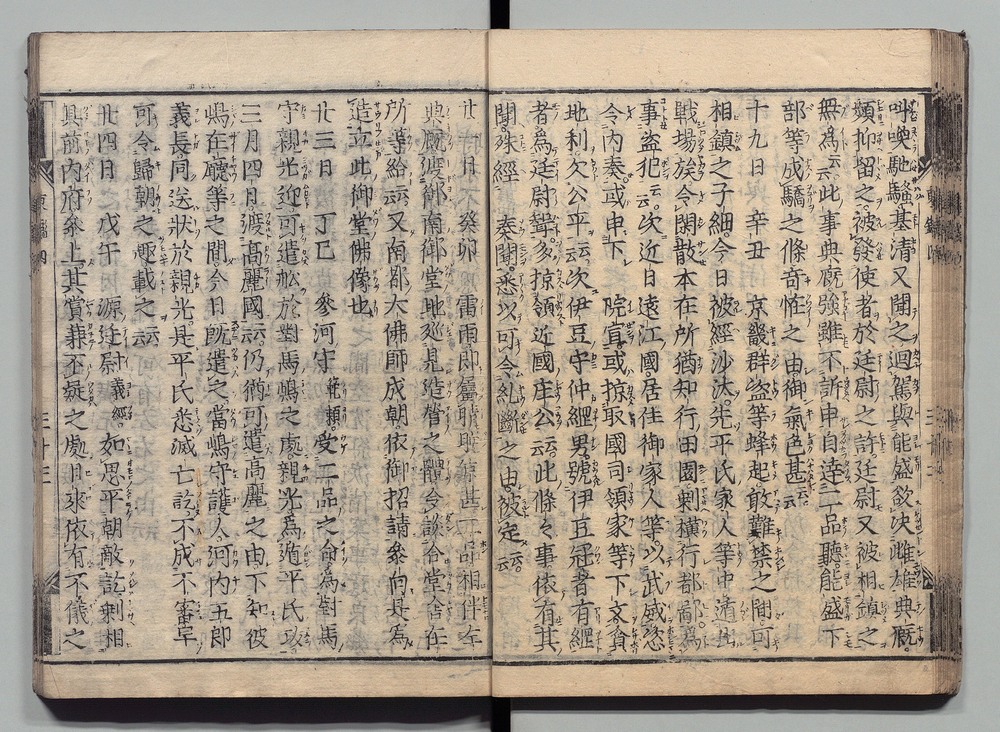 叫喚馳騷基清又聞之廻駕與能盛欲决雌雄典廐
頻抑留之被發使者於廷尉之許廷尉又被相鎮之
無為云云此事典廐強雖不訴申自達二品聽能盛下
部等成驕之條奇恠之由御氣色甚云云
十九日 辛丑 京畿群盗等蜂起敢難禁之間可
相鎮之子細今日被經沙汰先平氏家人等中遁出
戰塲族令閑散本在所猶知行田園剰横行都鄙為
事盗犯云云次近日遠江國居住御家人等以武威恣
令内奏或申下 院宣或掠取國司領家等下文貪
地利欠公平云云次伊豆守仲綱男號伊豆冠者有綱
者為廷尉聟多掠領近國庄公云云此條々事依有其
聞殊經 奏聞悉以可令糺斷之由被定云云
廿一日 癸卯 雷雨即属晴 二品相伴左
典廐渡御南御堂地巡見造畨之體令談合堂舎在
所等給云云又南都大佛師成朝依御招請参向是為
造立此御堂佛像也
廿三日 丁巳 参河守範頼受二品之命為對馬
守親光迎可遣舩於對馬嶋之處親光為遁平氏攻
三月四日渡髙麗國云云仍猶可遣高麗之由下知彼
嶋在廳等之間今日既遣之當嶋守護人河内五郎
義長同送狀於親光是平氏悉滅亡訖不成不審早
可令歸朝之趣載之云云
廿四日 戊午 源廷尉義經如思平朝敵訖剰相
具前内府参上其賞兼不疑之處日来依有不儀之